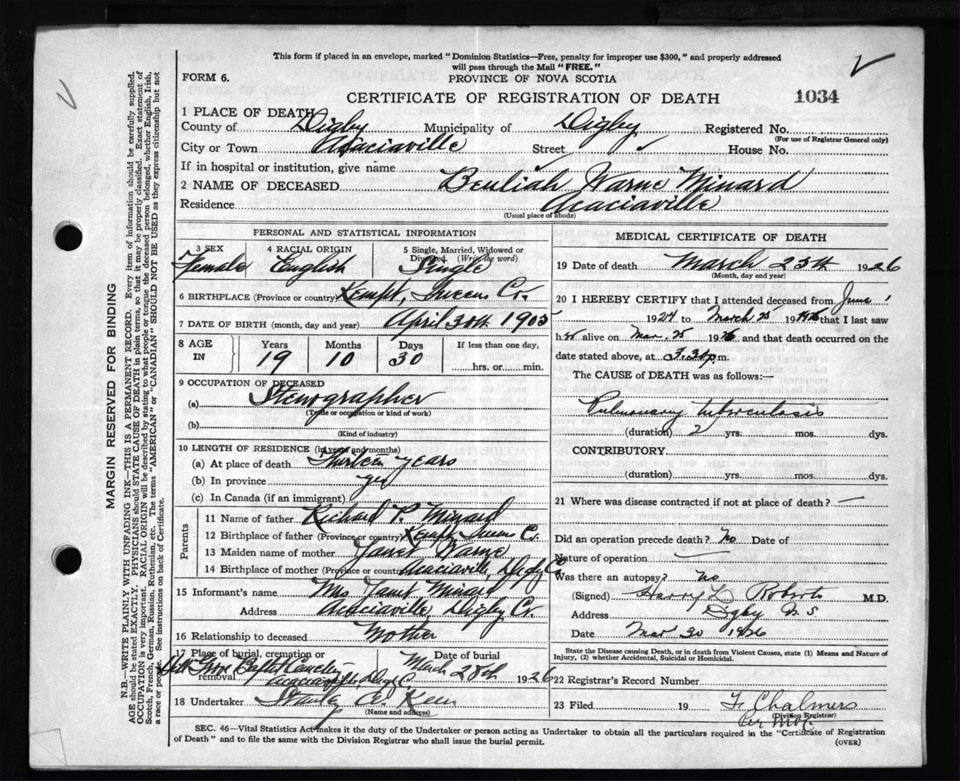 This form if placed in an envelope, marked "Dominion Statistics—Free, penalty for improper use $300," and properly addressed
will pass through the Mail "FREE."
FORM 6.
PROVINCE OF NOVA SCOTIA
CERTIFICATE OF REGISTRATION OF DEATH
1034
1 PLACE OF DEATH
County of Digby Municipality of Digby Registered No.
(For use of Registrar General only)
City or Town Acaciaville Street House No.
If in hospital or institution, give name
2 NAME OF DECEASED Beuliah Warne Minard
Residence Acaciaville
(Usual place of abode)
PERSONAL AND STATISTICAL INFORMATION
3 SEX 4 RACIAL ORIGIN 5 Single, Married, Widowed or
Divorced. (Write the word)
Female English Single
6 BIRTHPLACE (Province or country) Kempt, Queens Co.
7 DATE OF BIRTH (month, day and year) April 30th 1905
8 AGE IN Years Months Days If less than one day,
19 10 30 hrs. or min.
9 OCCUPATION OF DECEASED
(a) Stenographer
(Trade or occupation or kind of work)
(b)
(Kind of industry)
10 LENGTH OF RESIDENCE (in years and months)
(a) At place of death Thirteen years
(b) In province yes
(c) In Canada (if an immigrant)
Parents
11 Name of father Richard P. Minard
12 Birthplace of father (Province or country) Kempt Queens Co
13 Maiden name of mother Janet Warne
14 Birthplace of mother (Province or country) Acaciaville, Digby Co
15 Informant's name Mrs Janet Minard
Address Acaciaville, Digby Co.
16 Relationship to deceased Mother
17 Place of burial, cremation or Date of burial
removal Hill Grove Baptist Cemetery March 28th 1926
Acaciaville Digby Co
18 Undertaker
(Name and address)
MEDICAL CERTIFICATE OF DEATH
19 Date of death March 25th 1926
(Month, day and year)
20 I HEREBY CERTIFY that I attended deceased from June 1
1924 to March 25 1926 that I last saw
her alive on Mar. 25 1926 and that death occurred on the
date stated above, at 3.30 p.m.
The CAUSE of DEATH was as follows:
Pulmonary tuberculosis
(duration) 2 yrs. mos. dys.
CONTRIBUTORY.
(duration) yrs. mos. dys.
21 Where was disease contracted if not at place of death?
Did an operation precede death? No Date of
Nature of operation
Was there an autopsy? No
(Signed) Harry L Roberts M.D.
Address Digby N.S
Date Mar 30 1926
State the Disease causing Death, or in death from Violent Causes, state (1) Means and Nature of
Injury, (2) whether Accidental, Suicidal or Homicidal.
22 Registrar's Record Number
23 Filed 19 F. Chalmers
(Division Registrar)
SEC. 46—Vital Statistics Act makes it the duty of the Undertaker or person acting as Undertaker to obtain all the particulars required in the "Certificate of Registration
of Death" and to file the same with the Division Registrar who shall issue the burial permit.
(OVER)
MARGIN RESERVED FOR BINDING
N.B.—WRITE PLAINLY WITH UNFADING INK—THIS IS A PERMANENT RECORD. Every item of information should be carefully supplied.
AGE should be stated EXACTLY. PHYSICIANS should STATE CAUSE OF DEATH in plain terms, so that it may be properly classified. Exact statement of
OCCUPATION is very important. RACIAL ORIGIN will be described by stating to what people or tongue the deceased person belonged, whether English, Irish,
Scotch, French, German, Russian, Ruthenian, etc. The terms "AMERICAN" or "CANADIAN" SHOULD NOT BE USED as they express citizenship but not
a race or people. See instructions on back of Certificate.